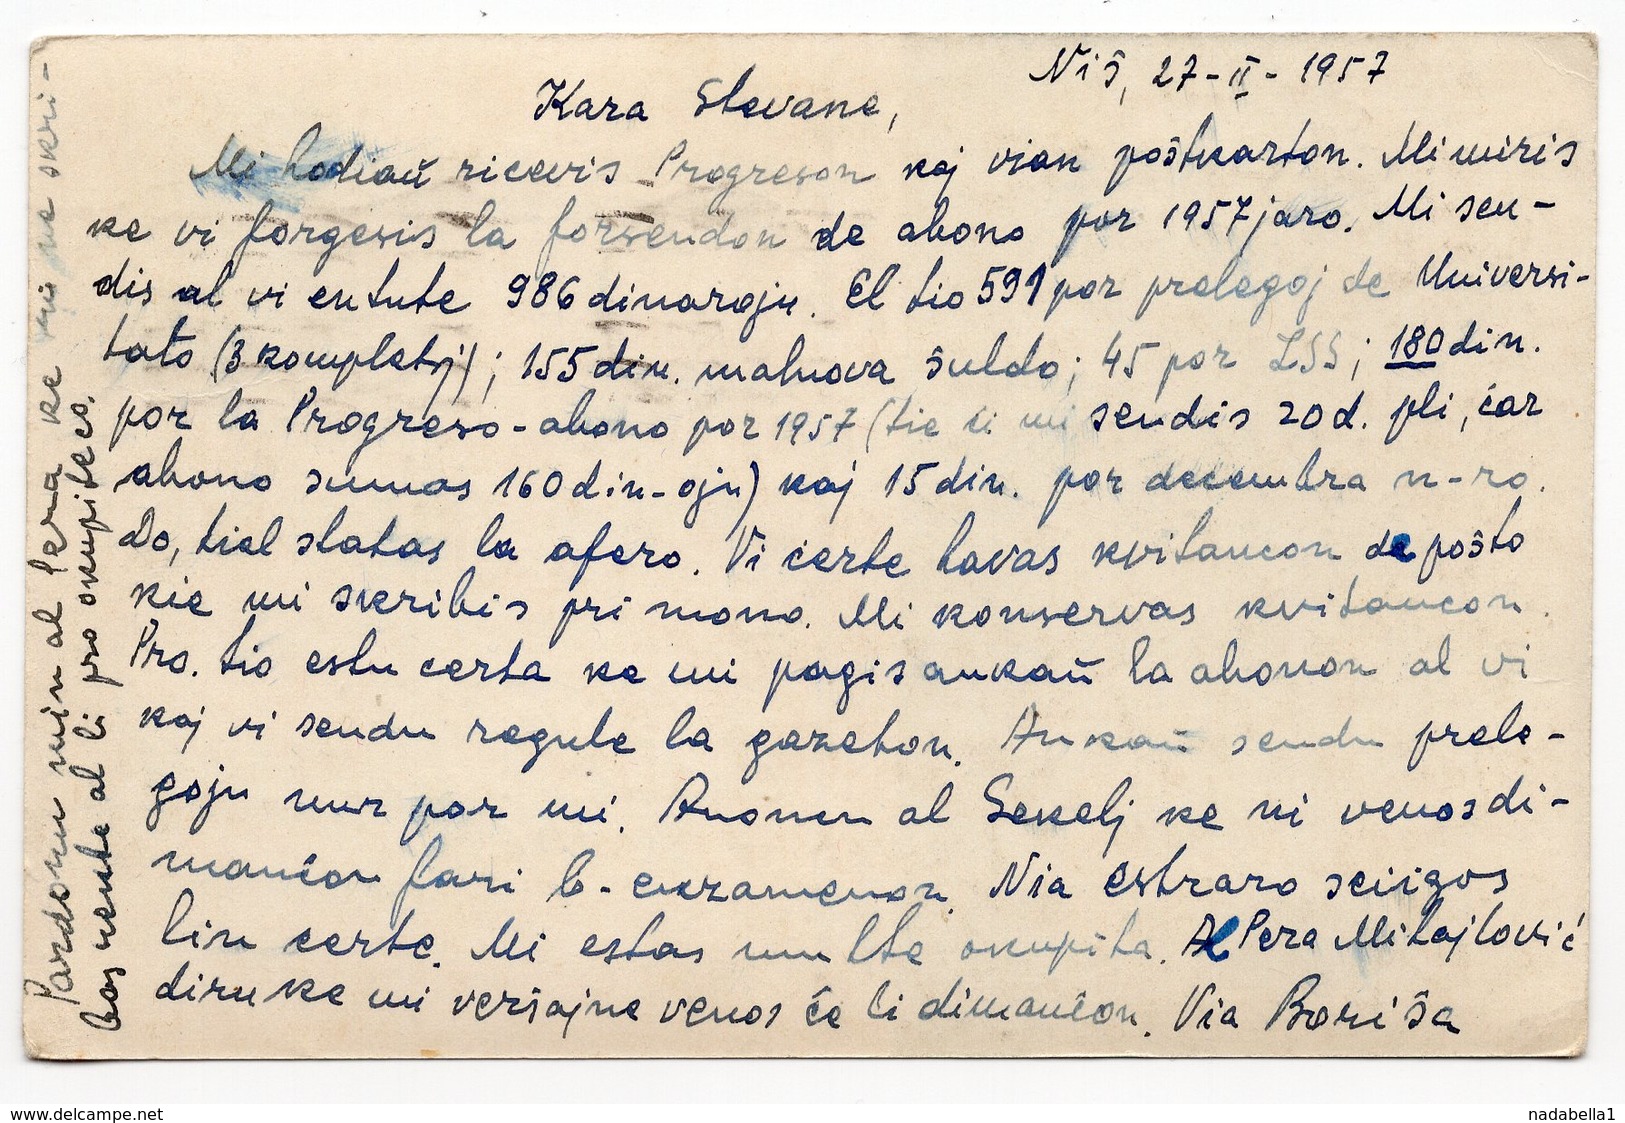 Niŝ, 27-II-1957
Kara Stevane,
Mi hodiaŭ ricevis Progreson kaj vian poŝtkarton. Mi miris
ke vi forgesis la forsendon de abono por 1957 jaro. Mi sen-
dis al vi entute 986 dinarojn. El tio 591 por prelegoj de Universi-
tato (3 kompletoj); 155 din. malnova ŝuldo; 45 por LSS; 180 din.
por la Progreso-abono por 1957 (tie ĉi mi sendis 20 d. pli, ĉar
abono sumas 160 din-ojn) kaj 15 din. por decembra n-ro.
Do, tiel statas la afero. Vi certe havas kvitancon de poŝto
kie mi skribis pri mono. Mi konservas kvitancon.
Pro tio estu certa ke mi pagis ankaŭ la abonon al vi
kaj vi sendu regule la gazeton. Ankaŭ sendu prele-
gojn nur por mi. Anoncu al Sekelj ke ni venos di-
manĉon fari b-ekzamenon. Nia estraro sciigos
lin certe. Mi estas multe okupita. Al Pera Mihajlović
diru ke mi verŝajne venos ĉe li dimanĉon. Via Boriŝa
Pardonu min al Pera ke mi ne skri-
bas nenke al li pro okupiteco.